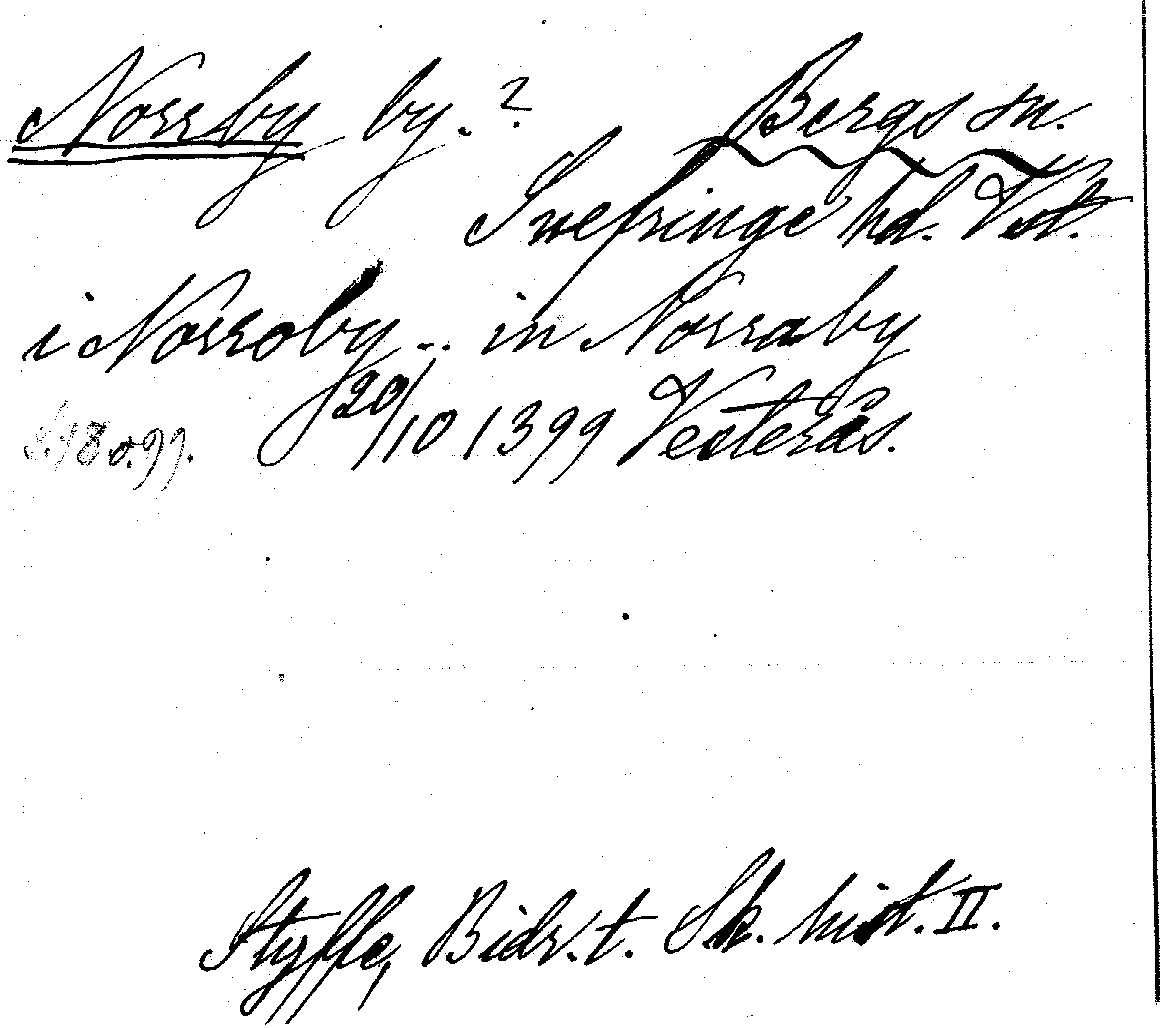 Norrby by. ? Bergs sn.
Snefringe hd. Vstm.
i Norroby .. in Norraby
20/10 1399 Vesterås.
s. 98 o. 99.
Styffe, Bidr. t. Sk. hist. II.